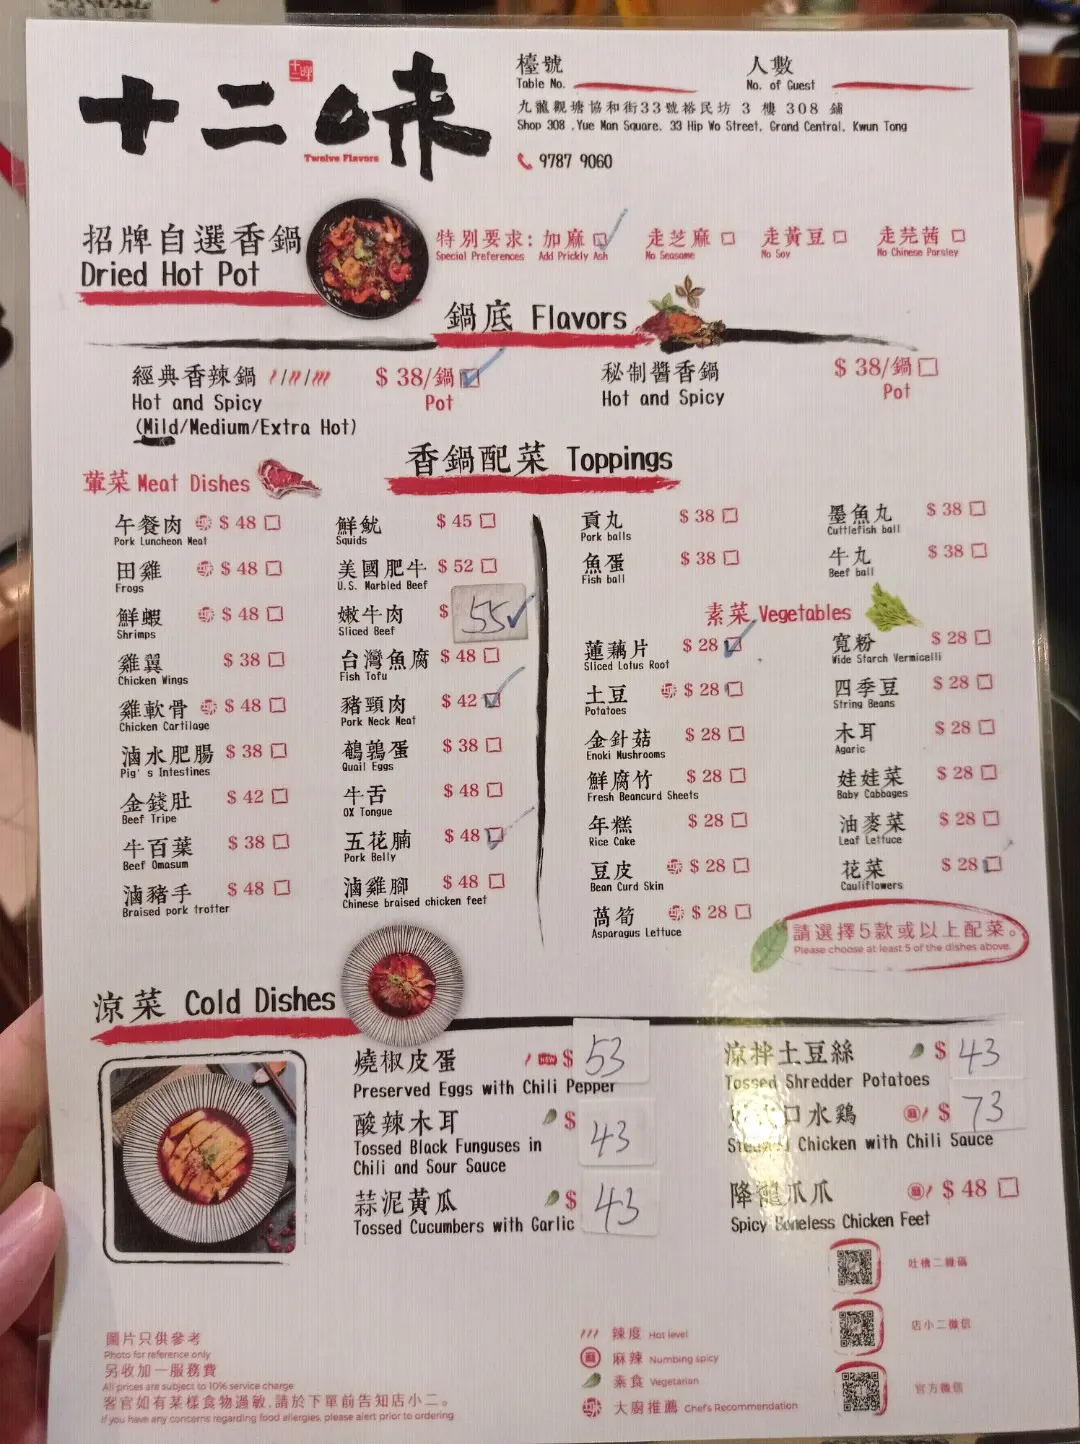 十二味
十二味
Twelve Flavors
檯號
Table No.
人數
No. of Guest
九龍觀塘協和街33號裕民坊 3 樓 308 鋪
Shop 308 ,Yue Man Square, 33 Hip Wo Street, Grand Central, Kwun Tong
9787 9060
招牌自選香鍋
Dried Hot Pot
特別要求: 加麻 走芝麻 走黃豆 走芫茜
Special Preferences Add Prickly Ash No Seasame No Soy No Chinese Parsley
鍋底 Flavors
經典香辣鍋 $ 38/鍋
Hot and Spicy Pot
(Mild/Medium/Extra Hot)
秘制醬香鍋 $ 38/鍋
Hot and Spicy Pot
香鍋配菜 Toppings
葷菜 Meat Dishes
午餐肉 $ 48
Pork Luncheon Meat
田雞 $ 48
Frogs
鮮蝦 $ 48
Shrimps
雞翼 $ 38
Chicken Wings
雞軟骨 $ 48
Chicken Cartilage
滷水肥腸 $ 38
Pig's Intestines
金錢肚 $ 42
Beef Tripe
牛百葉 $ 38
Beef Omasum
滷豬手 $ 48
Braised pork trotter
鮮魷 $ 45
Squids
美國肥牛 $ 52
U.S. Marbled Beef
嫩牛肉 $ 55
Sliced Beef
台灣魚腐 $ 48
Fish Tofu
豬頸肉 $ 42
Pork Neck Meat
鵪鶉蛋 $ 38
Quail Eggs
牛舌 $ 48
OX Tongue
五花腩 $ 48
Pork Belly
滷雞腳 $ 48
Chinese braised chicken feet
貢丸 $ 38
Pork balls
魚蛋 $ 38
Fish ball
墨魚丸 $ 38
Cuttlefish ball
牛丸 $ 38
Beef ball
素菜 Vegetables
蓮藕片 $ 28
Sliced Lotus Root
土豆 $ 28
Potatoes
金針菇 $ 28
Enoki Mushrooms
鮮腐竹 $ 28
Fresh Beancurd Sheets
年糕 $ 28
Rice Cake
豆皮 $ 28
Bean Curd Skin
萵筍 $ 28
Asparagus Lettuce
寬粉 $ 28
Wide Starch Vermicelli
四季豆 $ 28
String Beans
木耳 $ 28
Agaric
娃娃菜 $ 28
Baby Cabbages
油麥菜 $ 28
Leaf Lettuce
花菜 $ 28
Cauliflowers
請選擇5款或以上配菜。
Please choose at least 5 of the dishes above.
涼菜 Cold Dishes
燒椒皮蛋 NEW $ 53
Preserved Eggs with Chili Pepper
酸辣木耳 $ 43
Tossed Black Funguses in
Chili and Sour Sauce
蒜泥黃瓜 $ 43
Tossed Cucumbers with Garlic
涼拌土豆絲 $ 43
Tossed Shredder Potatoes
口水鷄 麻 $ 73
Chicken with Chili Sauce
降龍爪爪 麻 $ 48
Spicy Boneless Chicken Feet
吐槽二維碼
店小二微信
官方微信
圖片只供參考
Photo for reference only
另收加一服務費
All prices are subject to 10% service charge
客官如有某樣食物過敏,請於下單前告知店小二。
If you have any concerns regarding food allergies, please alert prior to ordering
辣度 Hot level
麻 麻辣 Numbing spicy
素食 Vegetarian
大廚推薦 Chef's Recommendation